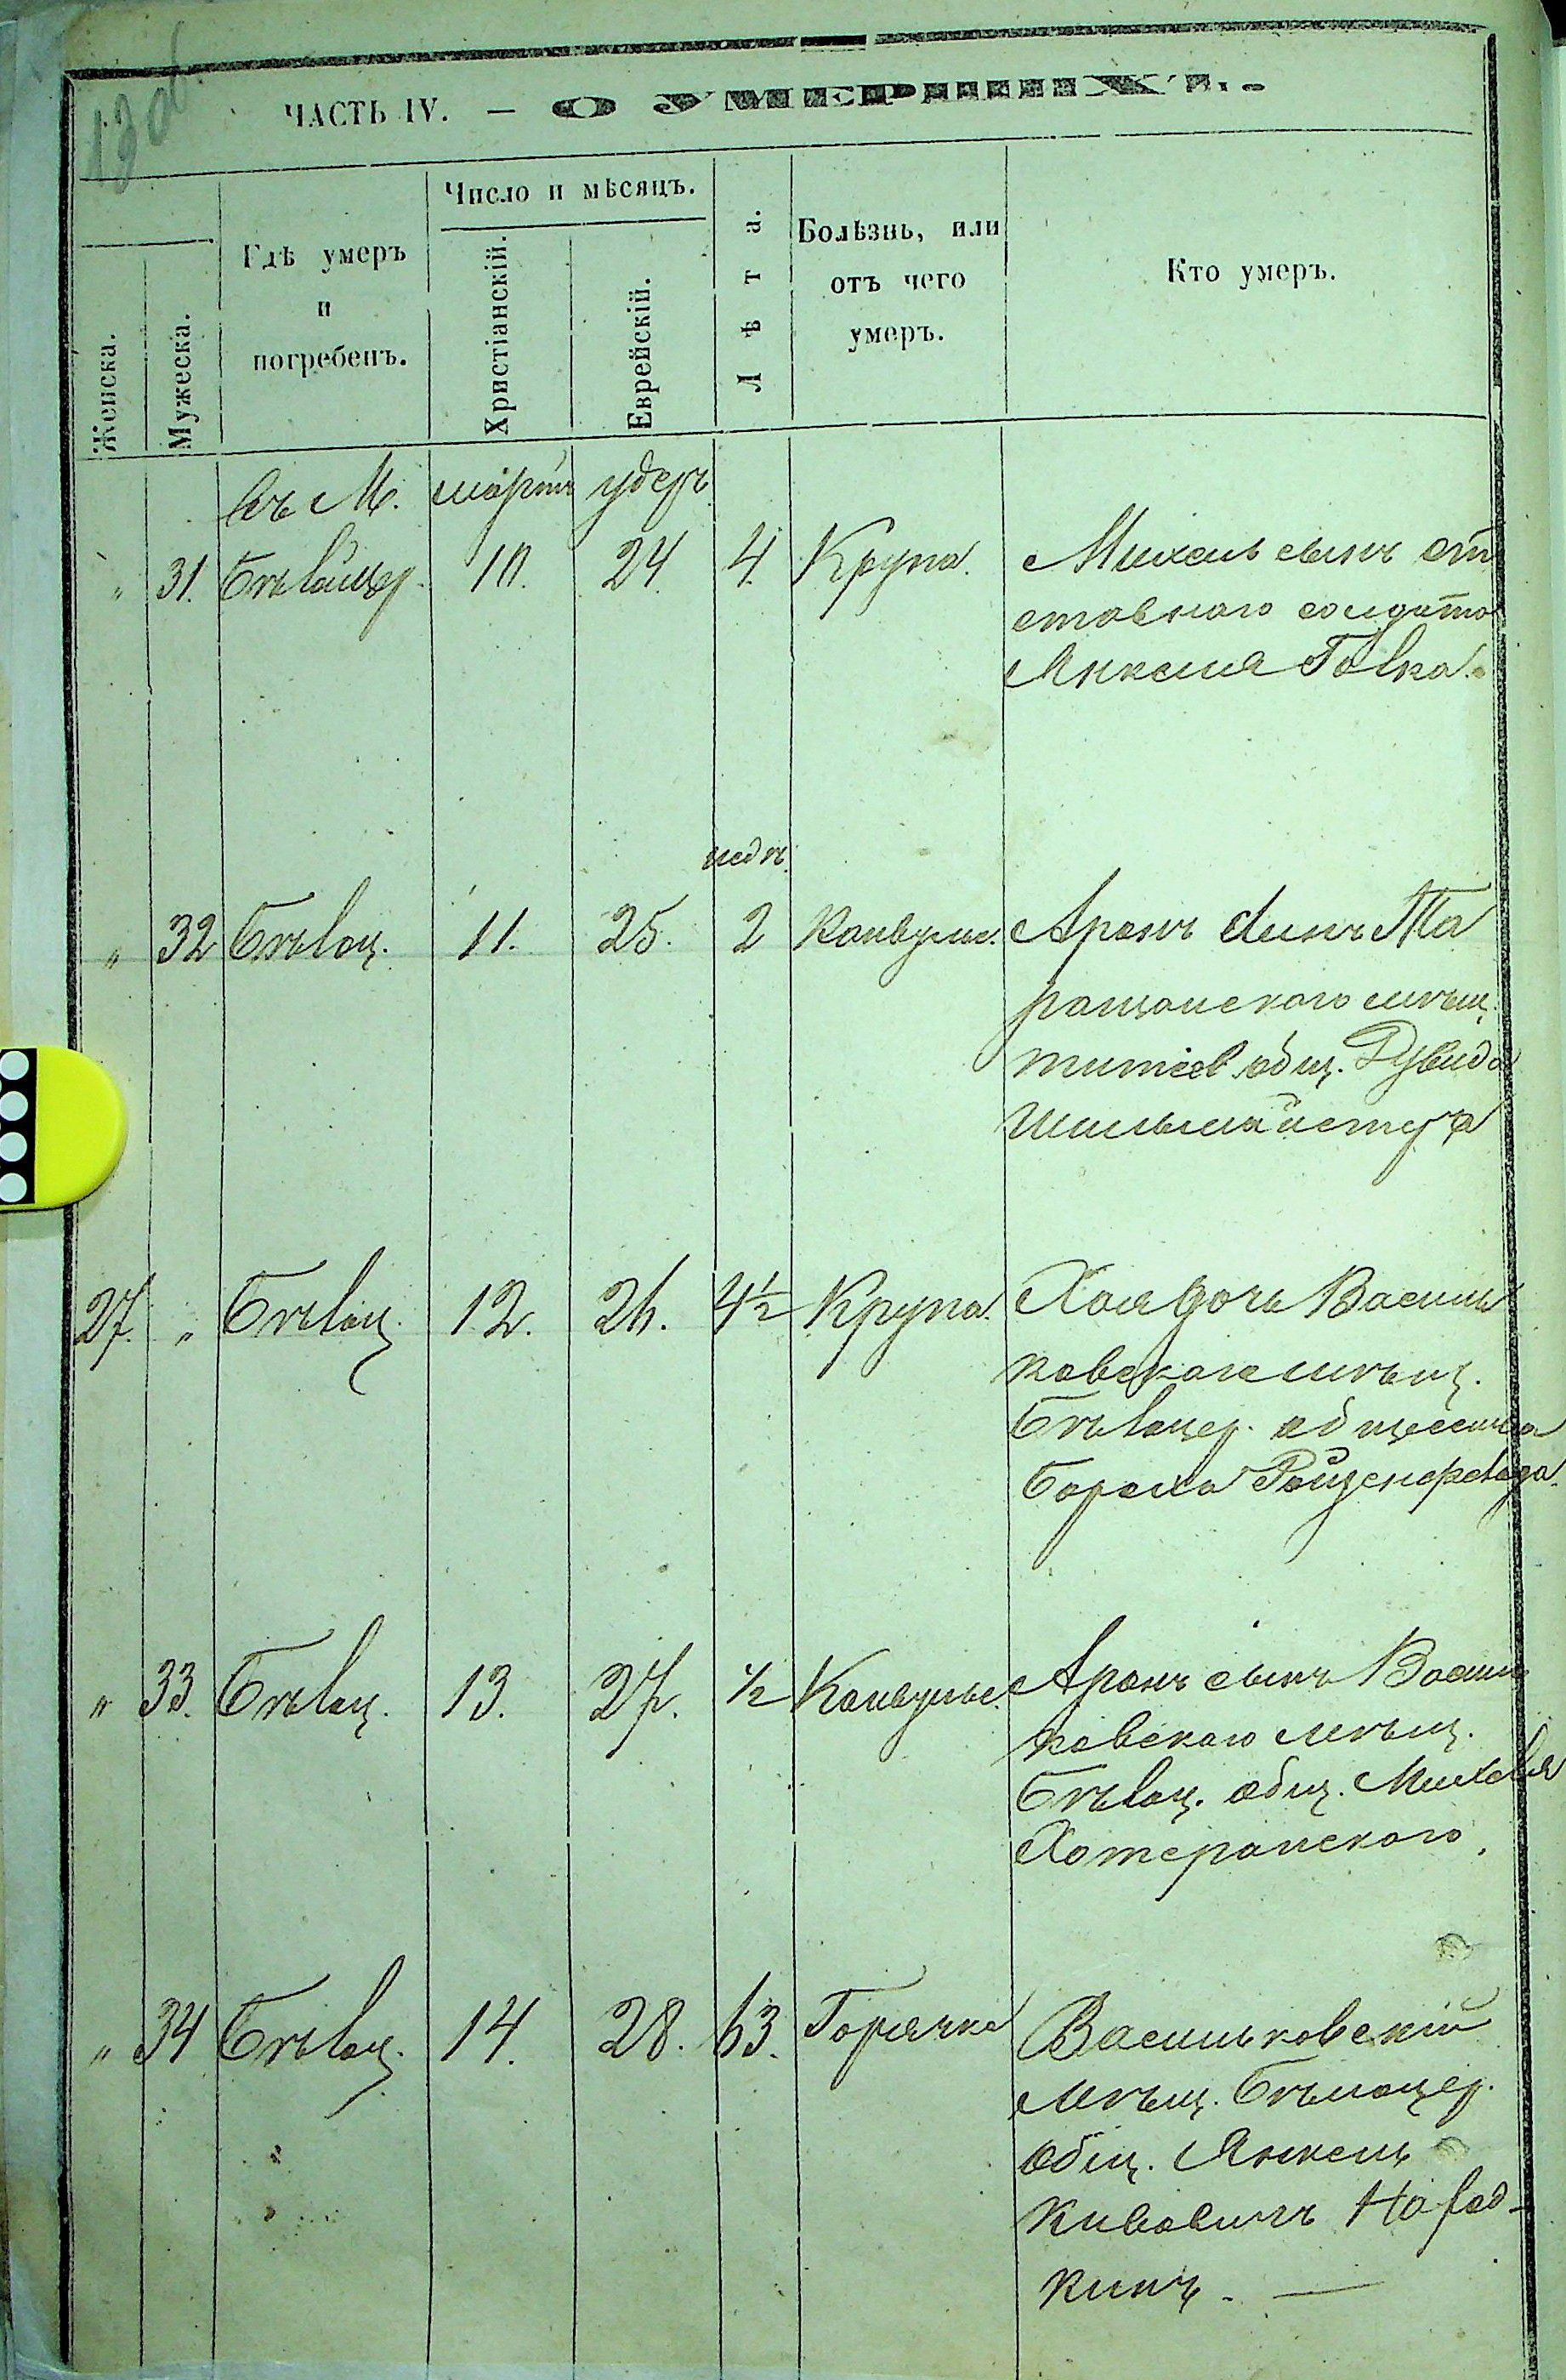 13об.
ЧАСТЬ IV. — О УМЕРШИХЪ.
Женска.
Мужеска.
Гдѣ умеръ
и
погребенъ.
Число и мѣсяцъ.
Христіанскій.
Еврейскій.
Лѣта.
Болѣзнь, или
отъ чего
умеръ.
Кто умеръ.
въ М. марта удеръ
" 31. Бѣлацер. 10. 24. 4. Крупа. Михель сынъ от
ставнаго солдата
Янкеля Говка.
недѣ.
" 32 Бѣлоц. 11. 25. 2 Конвульс. Аронъ сынъ Та
ращанскаго мѣщ.
титіев. общ. Дувида
Шильмайстера
27. " Бѣлоц. 12. 26. 4½ Крупа. Хая дочь Василь
ковскаго мѣщ.
Бѣлоцер. общества
Бороха
" 33. Бѣлоц. 13. 27. ½ Конвульс. Аронъ сынъ Василь
ковскаго мѣщ.
Бѣлоц. общ. Михеля
Хотеранскаго.
" 34 Бѣлоц. 14. 28. 63. Горячка Васильковскій
мѣщ. Бѣлоцер.
общ. Янкель
Кивовичъ Народ-
кинъ. —